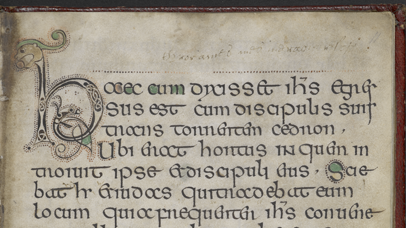 Haec cum dixisset ihs egres
sus est cum discipulis suis
trans torrentem cedron.
Ubi erat hortus in quem in
troiuit ipse & discipuli eius. Scie
bat & iudas qui tradebat eum
locum quia frequenter ihs conuene